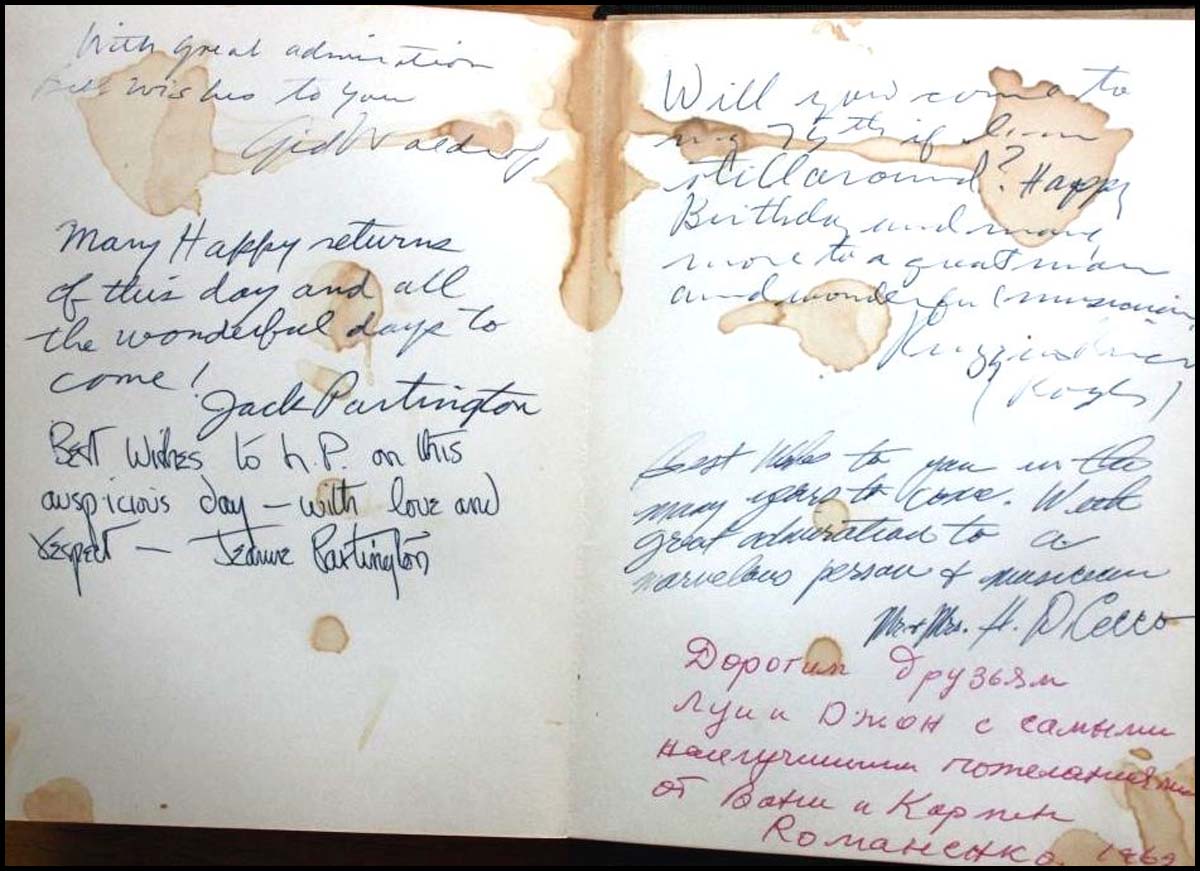 With great admiration
Best wishes to you
Gid Waldrop
Many Happy returns
of this day and all
the wonderful days to
come!
Jack Partington
Best Wishes to L.P. on this
auspicious day – with love and
respect — Jeanne Partington
Will you come to
my 75th if I am
still around? Happy
Birthday and many
more to a great man
and wonderful musician
Best Wishes to you in the
many years to come. With
great admiration to a
marvelous person & musician
Mr. & Mrs. H. DiCecco
Дорогим друзьям
Луи и Джон с самыми
наилучшими пожеланиями
от Вани и Кармен
Романенко. 1969